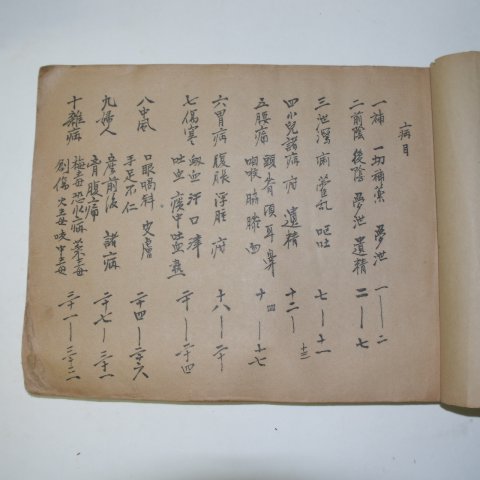 病目
一補 一切補藥 夢泄 一—二
二前陰 後陰 夢泄遺精 二—七
三泄瀉 霍乱 呕吐 七—十一
四小兒諸病 遺精 十二— 十三
五腰痛 頭脊項耳鼻
咽喉 膝 面 十四—十七
六胃病 腹脹 浮肚 十八—二十
七傷寒 衂血 汗 口津
吐血 痰中吐血 二十—二十四
八中風 口眼喎斜 皮膚
手足不仁 二十四—二十六
九婦人 産前後 諸病
腹痛 二十七—三十一
十雜病 梅毒 恐水病 菜毒
刀傷 火毒 蛟中毒 三十一—三十二